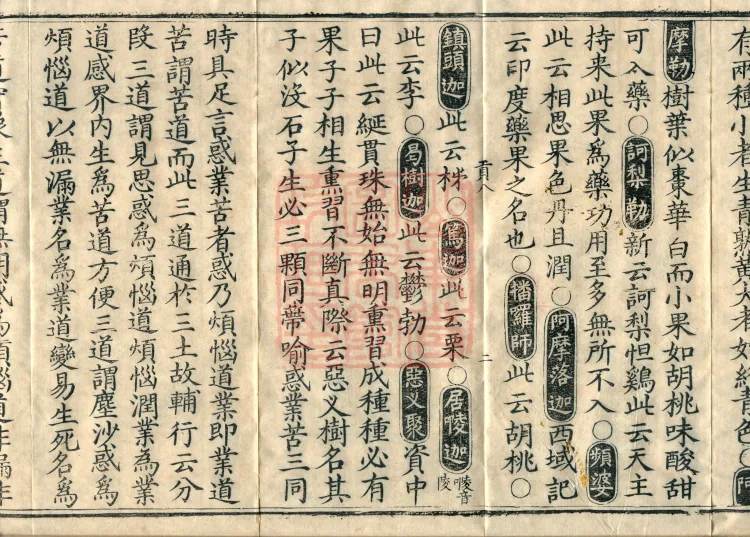 有兩種小者生青熟黃大者如綠青色○阿
摩勒樹葉似棗華白而小果如胡桃味酸甜
可入藥○訶梨勒新云訶梨怛鷄此云天主
持来此果爲藥功用至多無所不入○頻婆
此云相思果色丹且潤○阿摩落迦西域記
云印度藥果之名也○播囉師此云胡桃○
貢八
二
鎮頭迦此云柹○爲迦此云栗○居㖫迦㖫音陵
此云李○曷樹迦此云欝勃○惡义聚資中
曰此云綖貫珠無始無明熏習成種種必有
果子子相生熏習不斷真際云惡义樹名其
子似没石子生必三顆同蔕喻惑業苦三同
時具足言惑業苦者惑乃煩惱道業即業道
苦謂苦道而此三道通於三土故輔行云分
段三道謂見思惑爲煩惱道煩惱潤業爲業
道感界内生爲苦道方便三道謂塵沙惑爲
煩惱道以無漏業名爲業道變易生死名爲